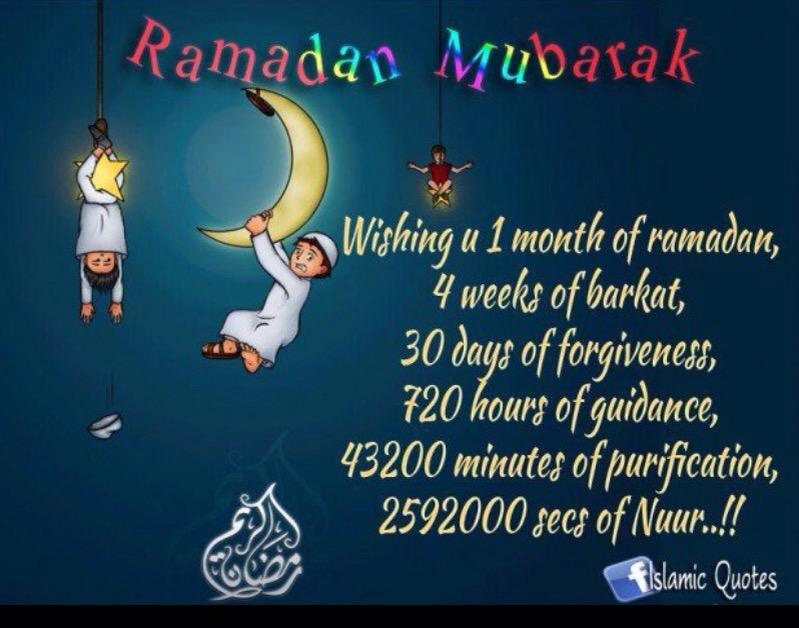 Ramadan Mubarak
Wishing u 1 month of ramadan,
4 weeks of barkat,
30 days of forgiveness,
720 hours of guidance,
43200 minutes of purification,
2592000 secs of Nuur..!!
رمضان الكريم
f Islamic Quotes